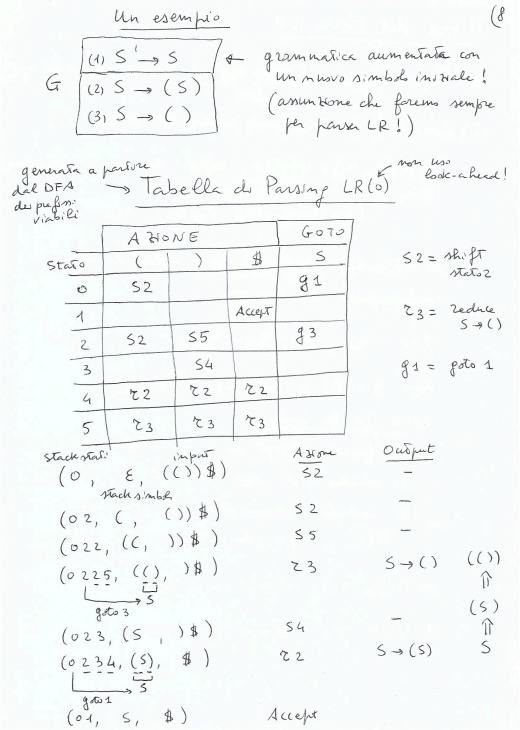 Un esempio
(8
G
(1) S' → S
(2) S → (S)
(3) S → ( )
← grammatica aumentata con
un nuovo simbolo iniziale!
(assunzione che faremo sempre
per parser LR!)
generata a partire
dal DFA
dei prefissi
viabili
→ Tabella di Parsing LR(0)
non uso
look-ahead!
AZIONE GOTO
Stato ( ) $ S
0 S2 g1
1 Accept
2 S2 S5 g3
3 S4
4 r2 r2 r2
5 r3 r3 r3
S2 = shift
stato 2
r3 = reduce
S → ()
g1 = goto 1
stack stati input Azione Output
(0, ε, (())$) S2 –
stack simboli
(02, (, ())$) S2 –
(022, ((, ))$) S5 –
(0225, ((), )$) r3 S → () (())
S ⇑
goto 3 (S)
(023, (S, )$) S4 – ⇑
(0234, (S), $) r2 S → (S) S
S
goto 1
(01, S, $) Accept